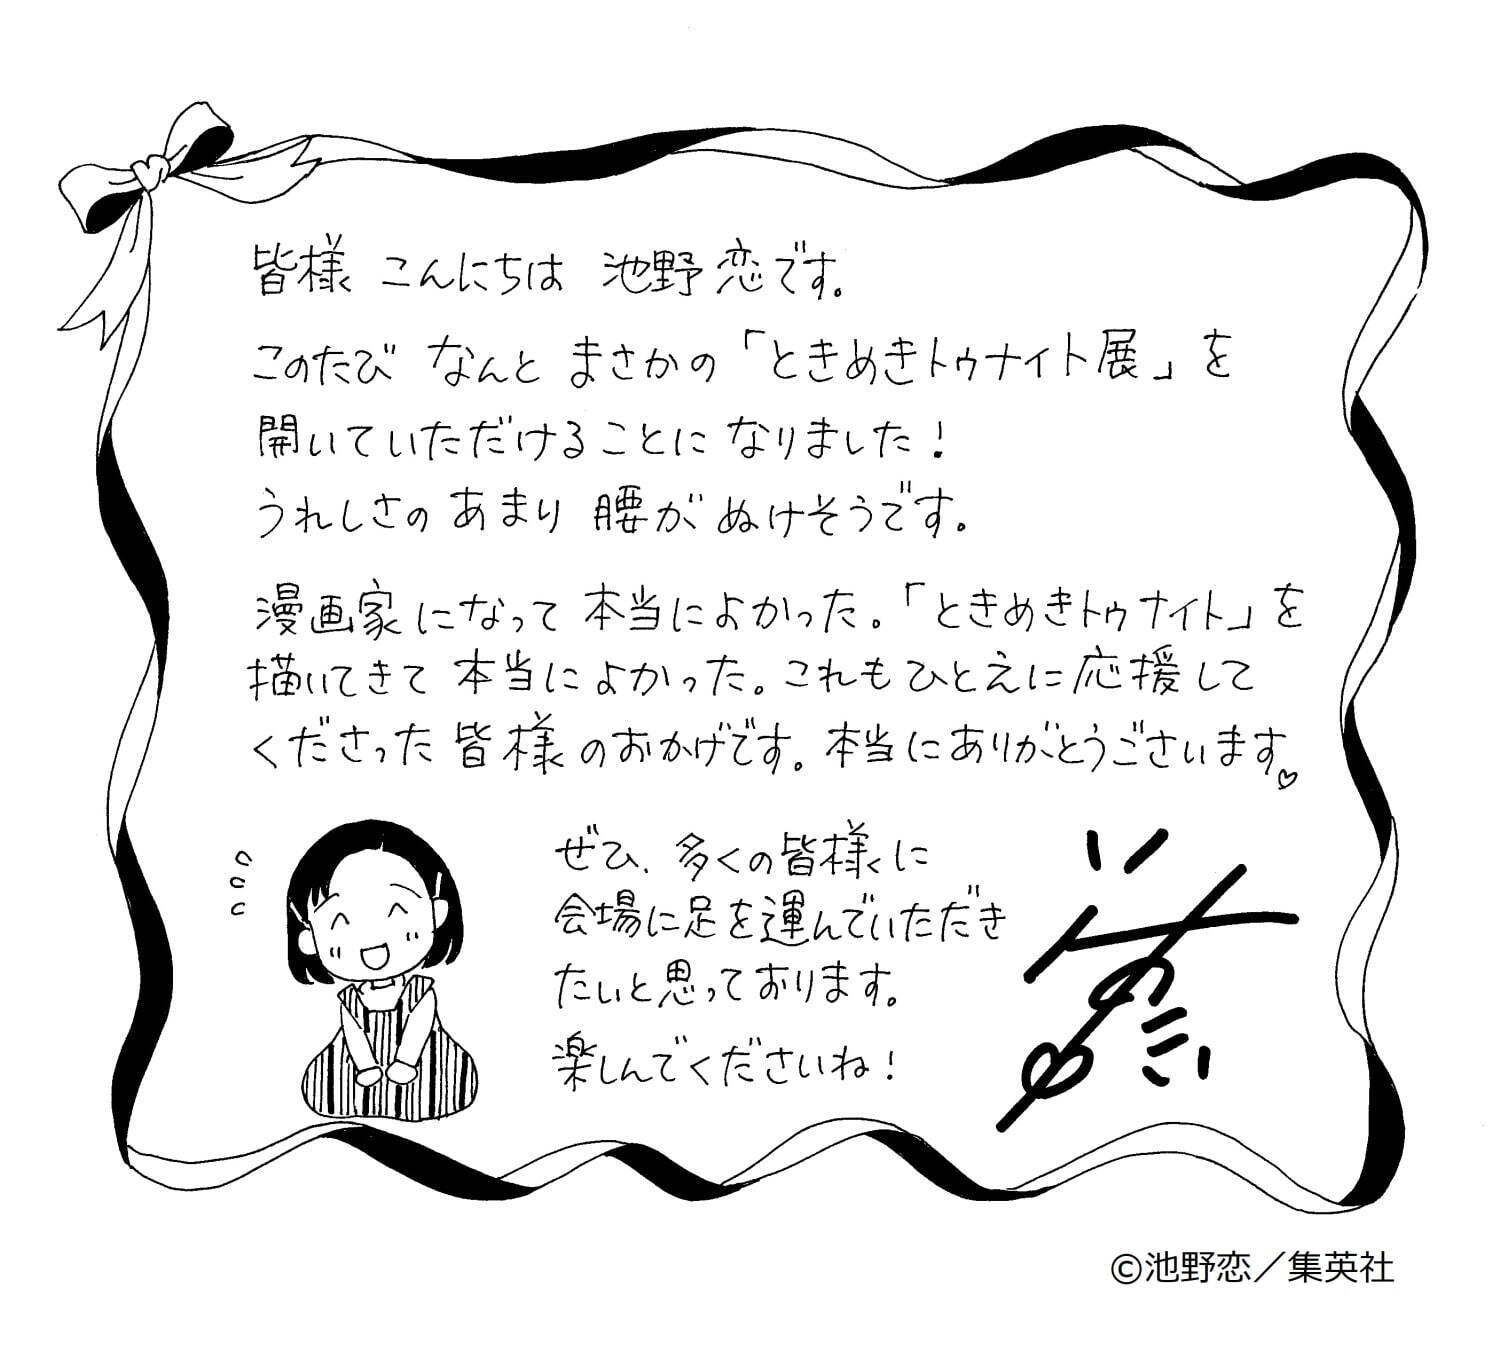 皆様 こんにちは 池野恋です。
このたび なんと まさかの「ときめきトゥナイト展」を
開いていただけることに なりました!
うれしさの あまり 腰が ぬけそうです。
漫画家になって 本当によかった。「ときめきトゥナイト」を
描いてきて 本当によかった。これもひとえに応援して
くださった 皆様のおかげです。本当にありがとうございます♡
ぜひ、多くの皆様に
会場に足を運んでいただき
たいと思っております。
楽しんでくださいね!
©池野恋/集英社